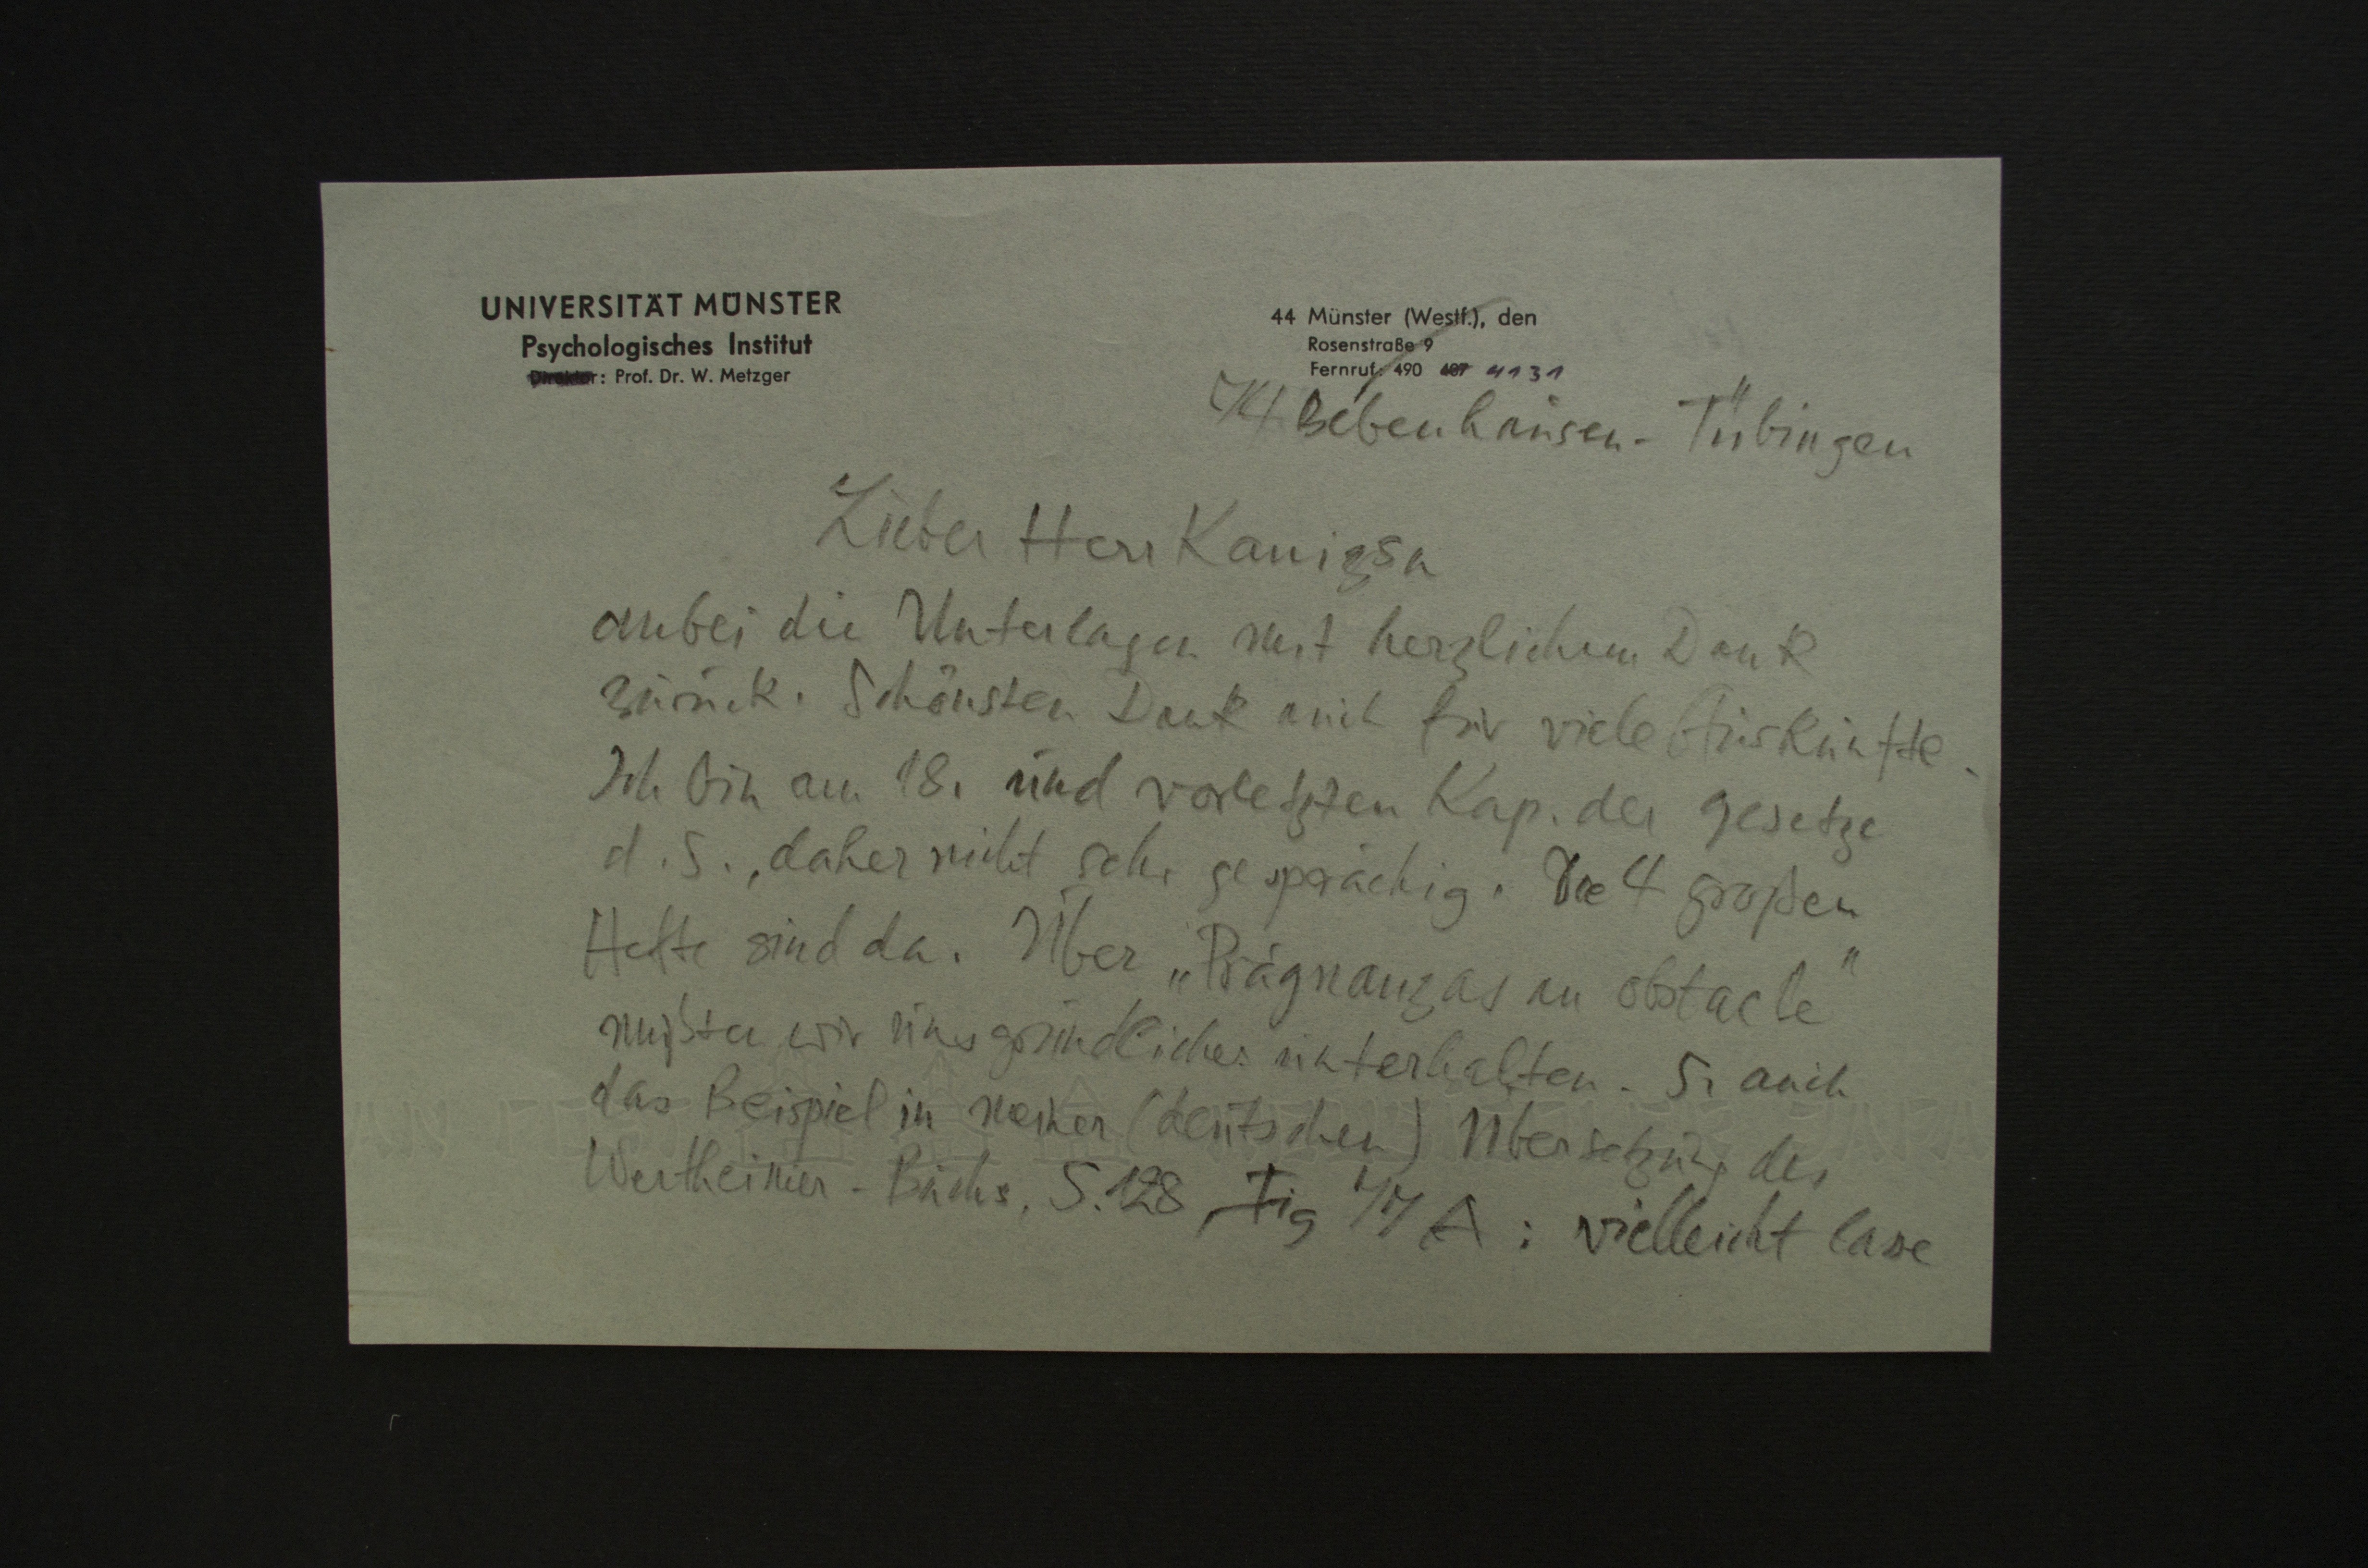 UNIVERSITÄT MÜNSTER
Psychologisches Institut
Direktor: Prof. Dr. W. Metzger
44 Münster (Westf.), den
Rosenstraße 9
Fernruf: 490 407 4131
74 Bebenhausen - Tübingen
Lieber Herr Kanizsa
anbei die Unterlagen mit herzlichem Dank
zurück. Schönsten Dank auch für viele Auskünfte.
Ich bin am 18. und vorletzten Kap. der Gesetze
d. S., daher nicht sehr gesprächig. Die 4 großen
Hefte sind da. Über „Prägnanz as an obstacle"
müßten wir uns gründlicher unterhalten. S. auch
das Beispiel in meiner (deutschen) Übersetzung des
Wertheimer-Buchs, S. 128, Fig 77 A : vielleicht lasse